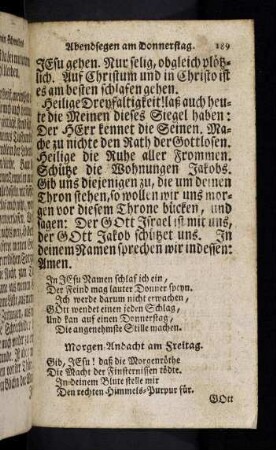 Abendsegen am Donnerstag. 189
JEsu gehen. Nur selig, obgleich plötz-
lich. Auf Christum und in Christo ist
es am besten schlafen gehen.
Heilige Dreyfaltigkeit! laß auch heu-
te die Meinen dieses Siegel haben:
Der HErr kennet die Seinen. Ma-
che zu nichte den Rath der Gottlosen.
Heilige die Ruhe aller Frommen.
Schütze die Wohnungen Jakobs.
Gib uns diejenigen zu, die um deinen
Thron stehen, so wollen wir uns mor-
gen vor diesem Throne bücken, und
sagen: Der GOtt Israel ist mit uns,
der GOtt Jakob schützet uns. In
deinem Namen sprechen wir indessen:
Amen.
In JEsu Namen schlaf ich ein,
Der Feind mag lauter Donner speyn.
Ich werde darum nicht erwachen,
GOtt wendet einen jeden Schlag,
Und kan auf einen Donnerstag,
Die angenehmste Stille machen.
Morgen-Andacht am Freitag.
Gib, JEsu! daß die Morgenröthe
Die Macht der Finsternissen tödte.
In deinem Blute stelle mir
Den rechten Himmels-Purpur für.
GOtt